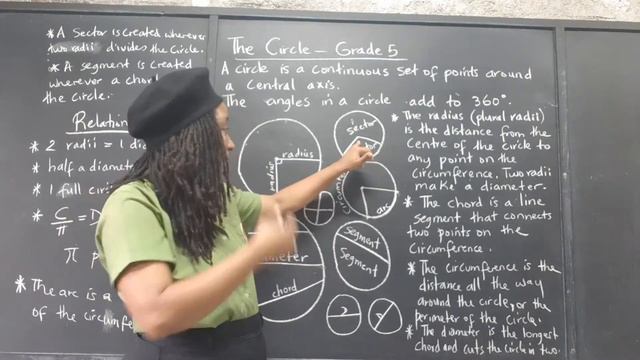 * A Sector is created wherever
two radii divides the circle.
* A segment is created
wherever a chord
the circle.
Relation
* 2 radii = 1 dia
* half a diamete
* 1 full cir
* C/π = D
π
* The arc is a
of the circumfe
The Circle – Grade 5
A circle is a continuous set of points around
a central axis.
The angles in a circle add to 360°.
radius
radius
meter
chord
sector
arc
Segment
Segment
* The radius (plural radii)
is the distance from the
centre of the circle to
any point on the
circumference. Two radii
make a diameter.
* The chord is a line
segment that connects
two points on the
circumference.
* The circumference is the
distance all the way
around the circle, or the
perimeter of the circle.
* The diameter is the longest
chord and cuts the circle in two.